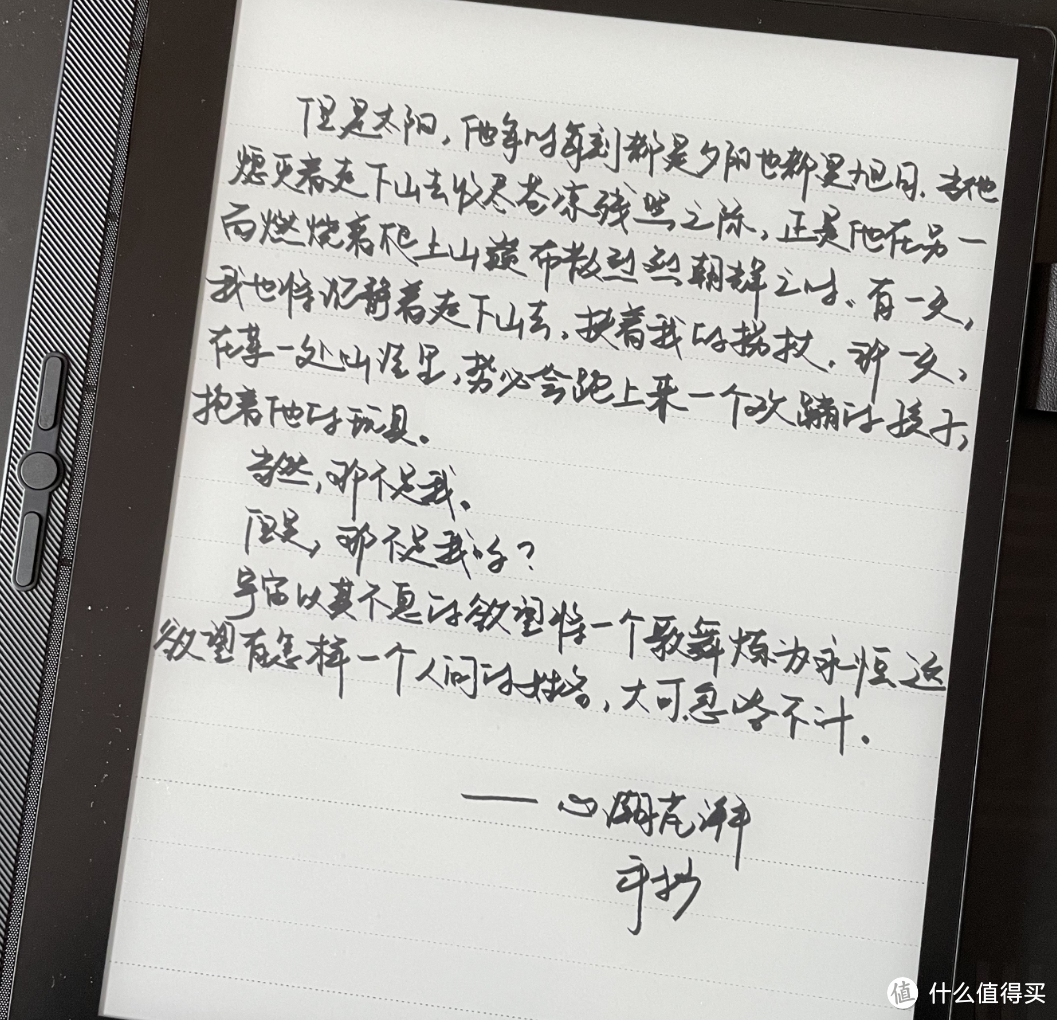 但是太阳，他每时每刻都是夕阳也都是旭日。当他
熄灭着走下山去收尽苍凉残照之际，正是他在另一
面燃烧着爬上山巅布散烈烈朝辉之时。有一天，
我也将沉静着走下山去，扶着我的拐杖。那一天，
在某一处山洼里，势必会跑上来一个欢蹦的孩子，
抱着他的玩具。
当然，那不是我。
但是，那不是我吗？
宇宙以其不息的欲望将一个歌舞炼为永恒这
欲望有怎样一个人间的姓名，大可忽略不计。
—— 心潮芃湃
手抄
值 什么值得买